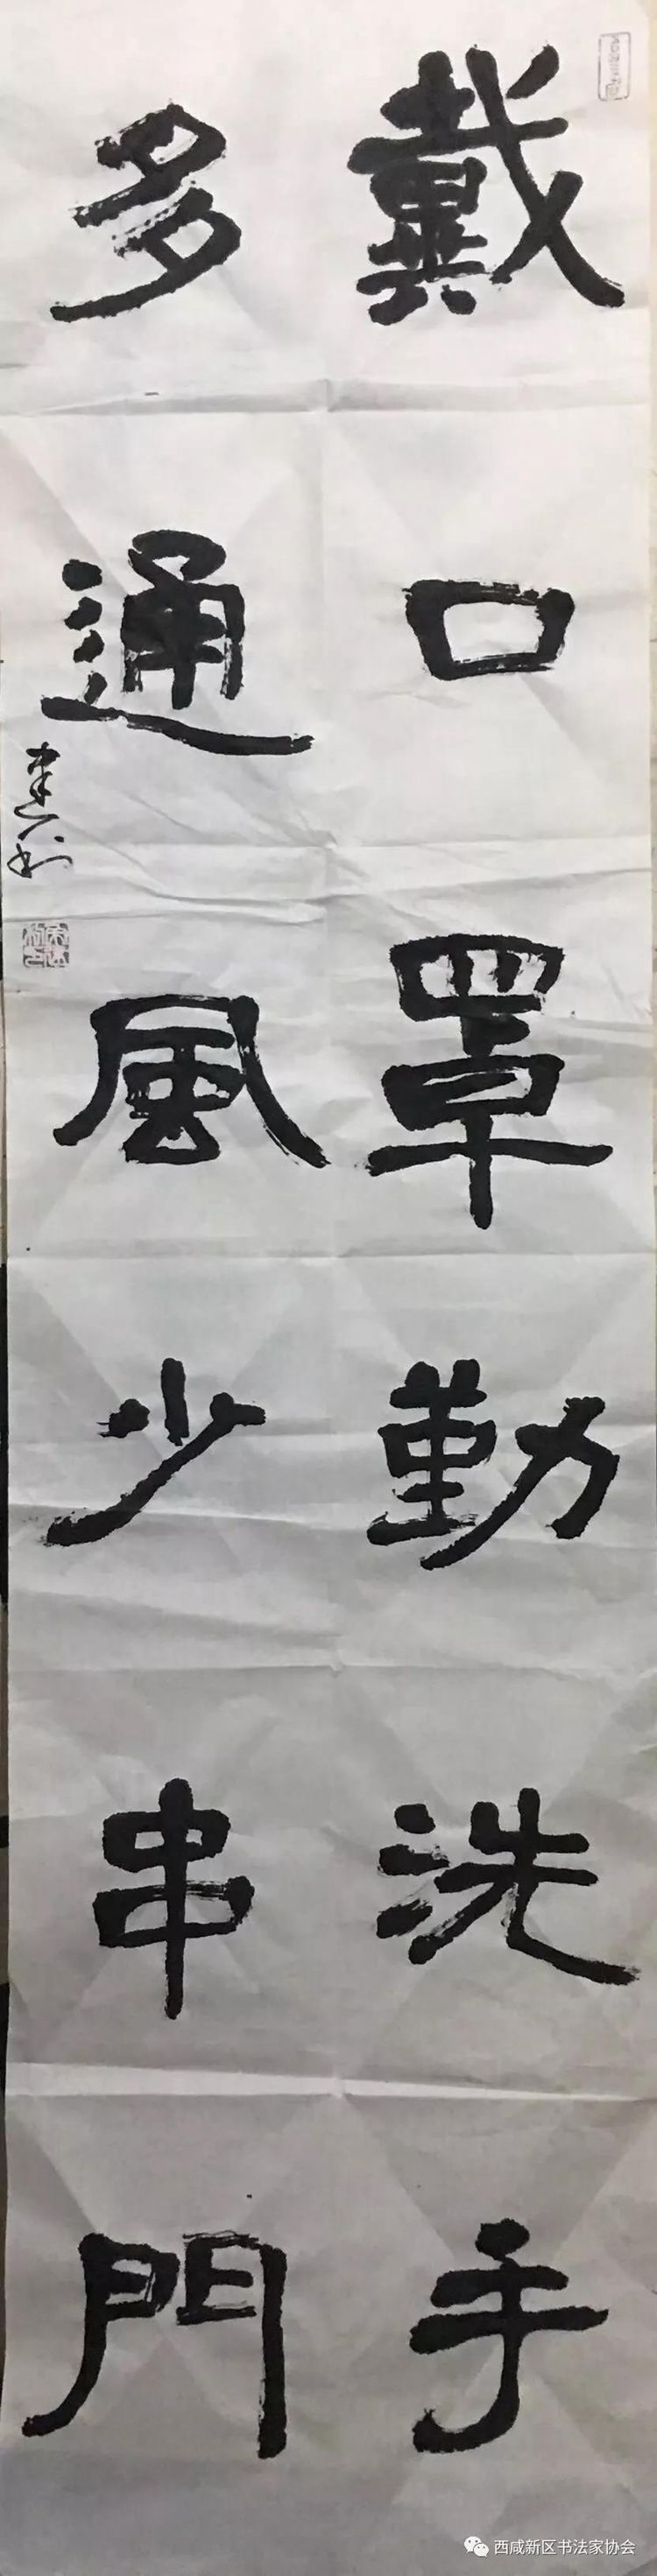 戴口罩勤洗手
多通風少串門
建利
西咸新区书法家协会